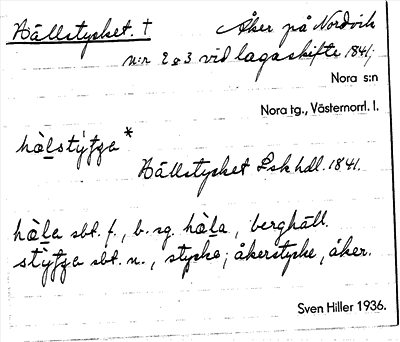 Hällstycket. † Åker på Nordvik
n:r 2 o 3 vid lagaskifte 1841;
Nora s:n
Nora tg., Västernorrl. l.
hàlstýtja *
Hällstycket Lsk hdl. 1841.
hàla sbt. f., b. sg. hàla, berghäll.
stýtja sbt. n., stycke; åkerstycke, åker.
Sven Hiller 1936.